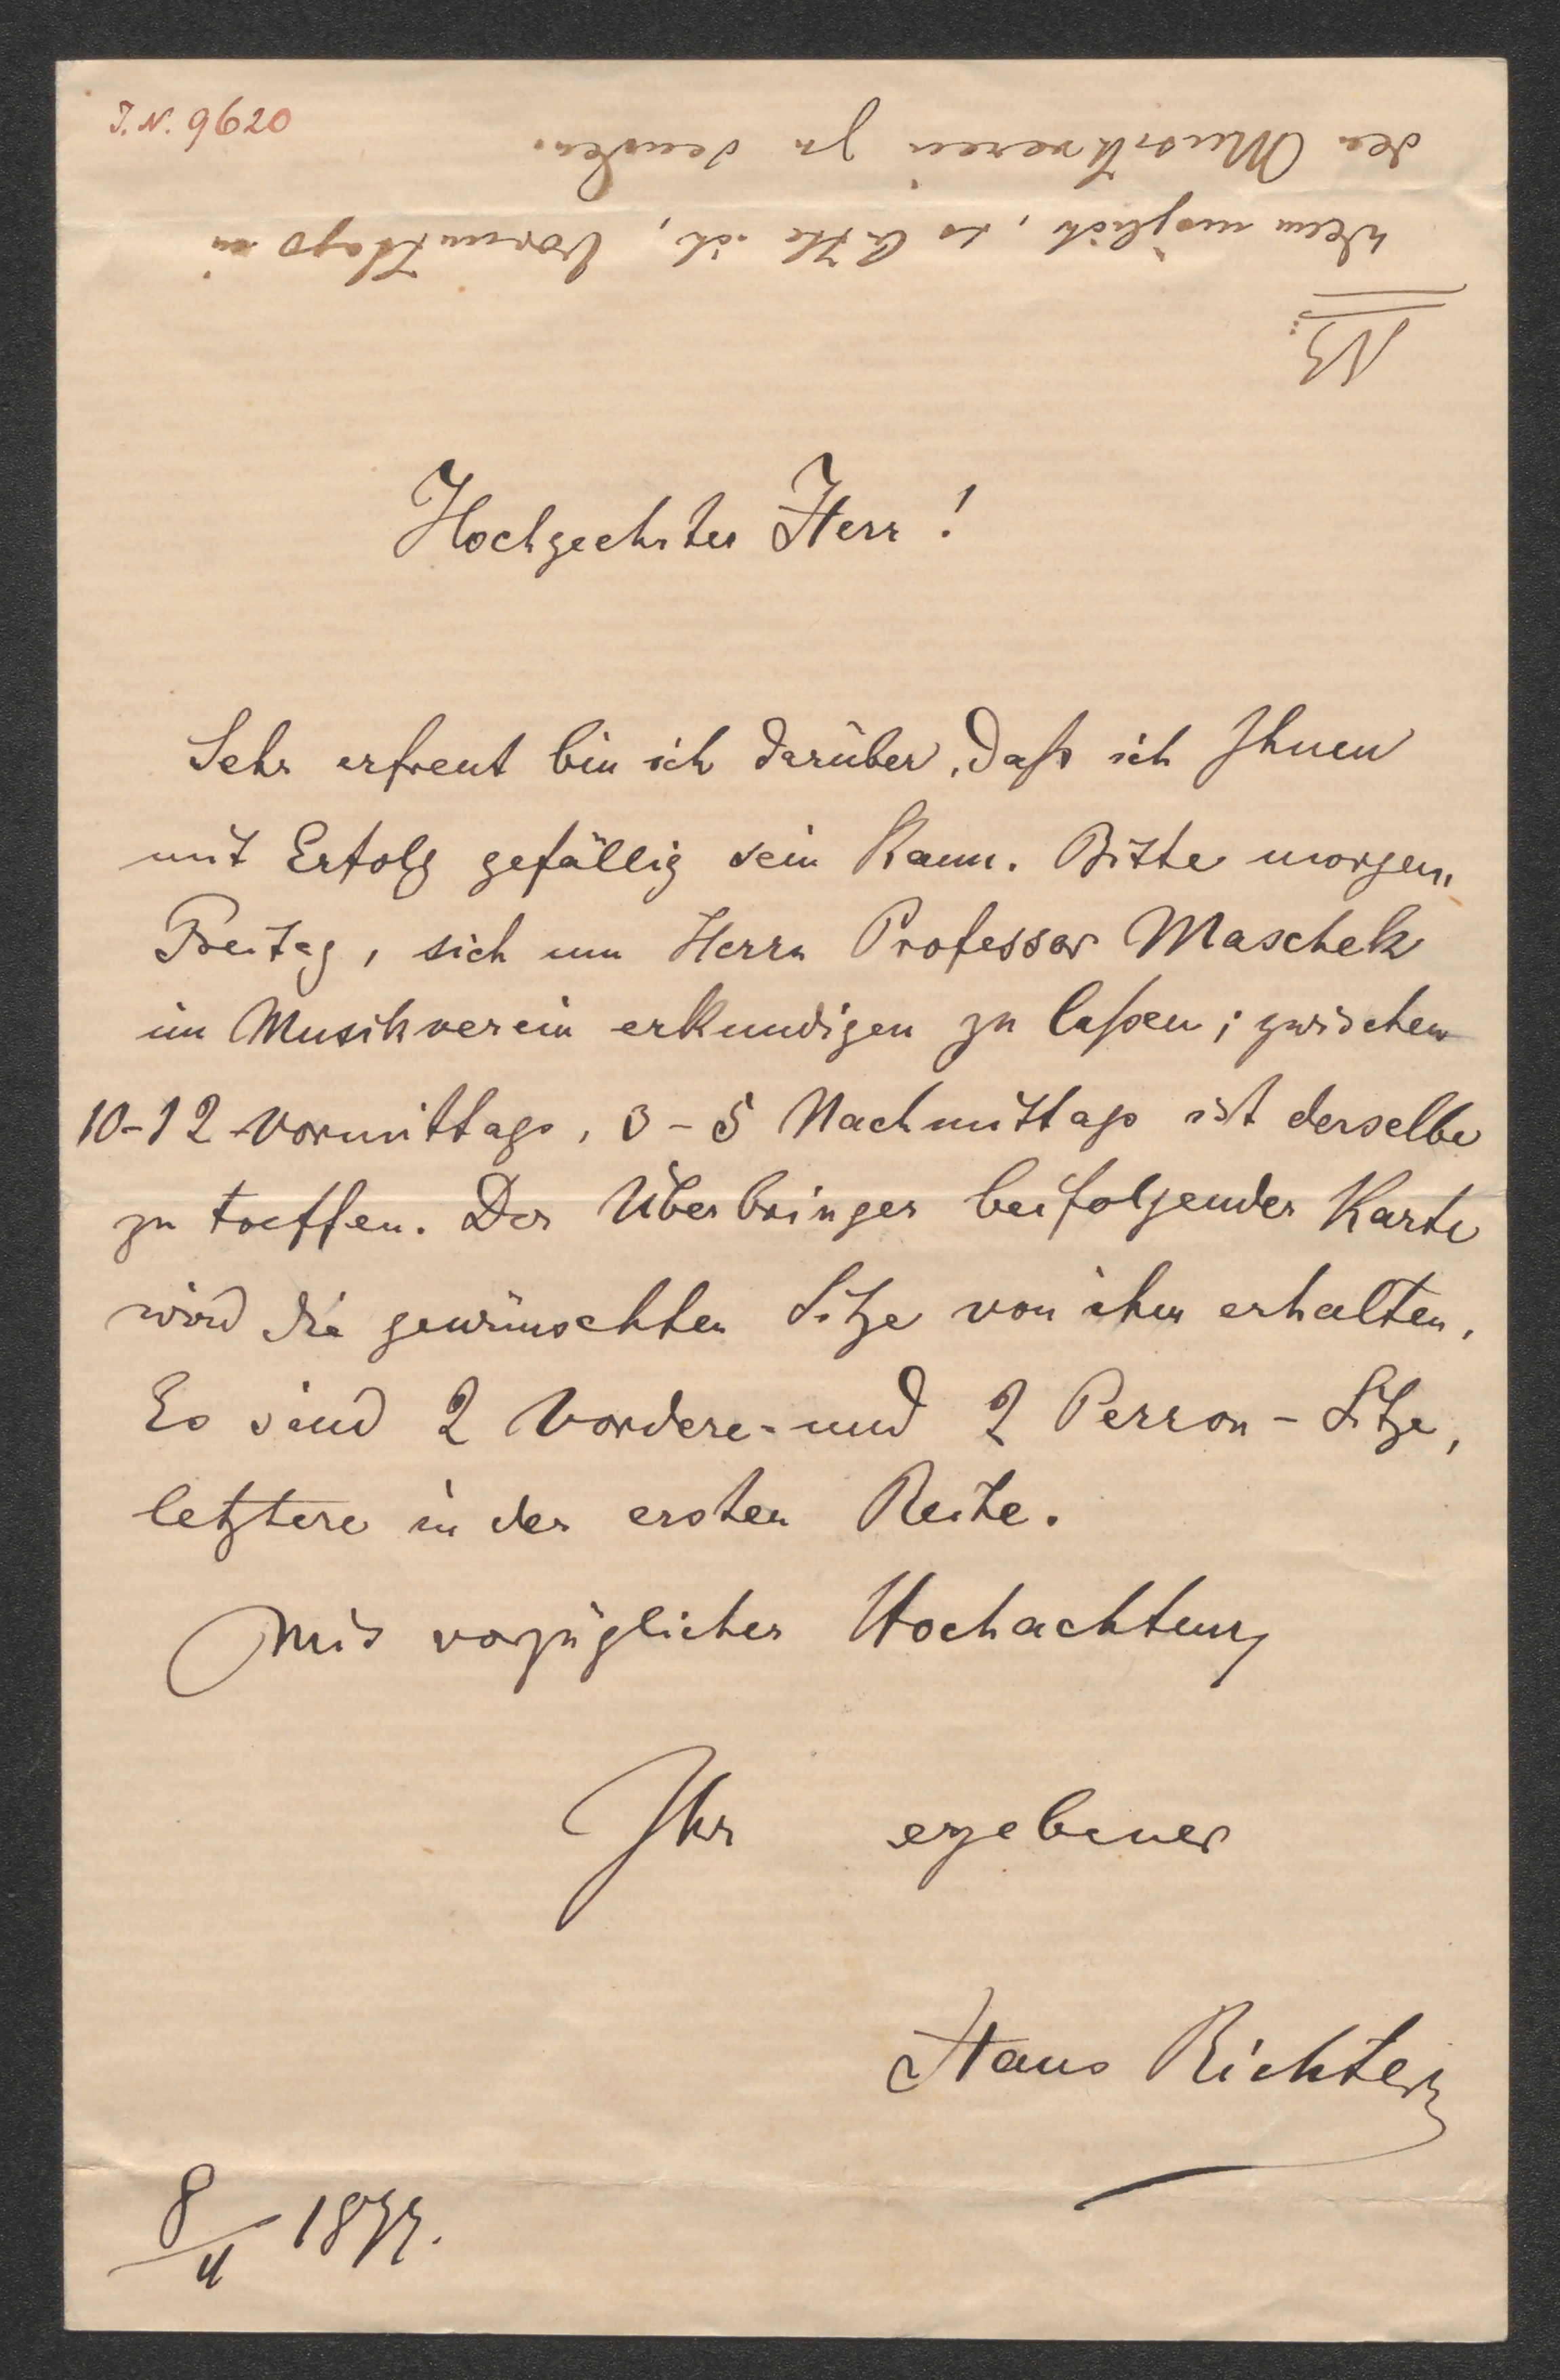 I.N. 9620
Hochgeehrter Herr!
Sehr erfreut bin ich darüber, daß ich Ihnen
mit Erfolg gefällig sein kann. Bitte morgen,
Freitag, sich um Herrn Professor Maschek
im Musikverein erkundigen zu laßen; zwischen
10-12 Vormittags, 3-5 Nachmittags ist derselbe
zu treffen. Der Überbringer beifolgender Karte
wird die gewünschten Sitze von ihm erhalten.
Es sind 2 Vordere- und 2 Perron-Sitze,
letztere in der ersten Reihe.
Mit vorzüglicher Hochachtung
Ihr ergebener
Hans Richter
8/11 1877.
NB:
Wenn möglich, so bitte ich, Vormittags in
den Musikverein zu senden.